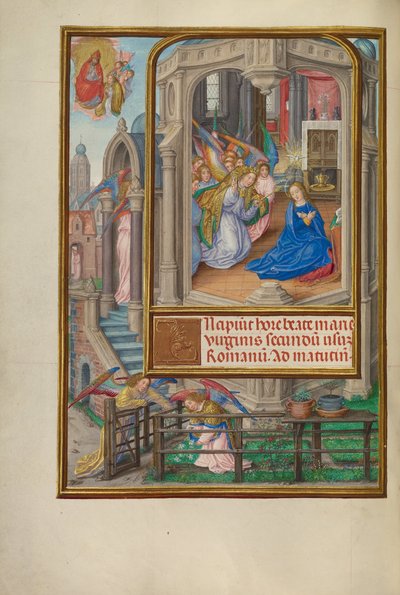 INcipiūt hore beate marie
virginis secundū usuꝫ
Romanū. Ad matutin̄